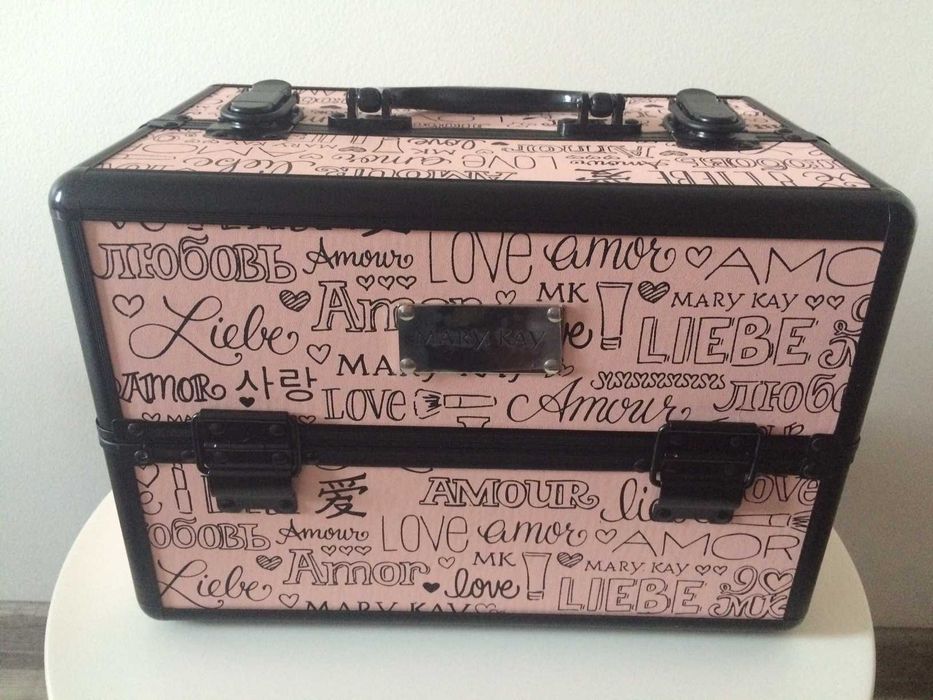 Liebe amor LOVE amor MK love! Amor
Amour LIEBE
AMOUR 爱 LIEBE
ЛЮБОВЬ Amour LOVE amor AMO
Amor MK MARY KAY
Liebe MARY KAY LIEBE
AMOR 사랑 LOVE Amour
爱 AMOUR
LOVE amor AMOR
Amour
Amor MK MARY KAY
Liebe love! LIEBE
MARY KAY MK